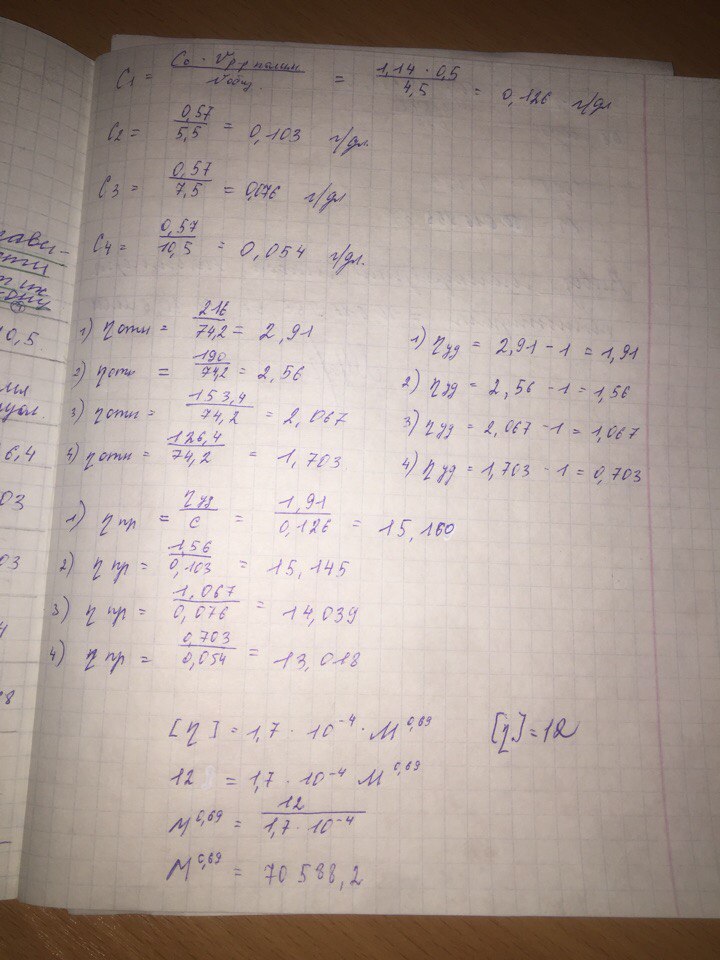 C₁ = C₀ · Vрр полим / Vобщ = 1,14 · 0,5 / 4,5 = 0,126 г/дл
C₂ = 0,57 / 5,5 = 0,103 г/дл.
C₃ = 0,57 / 7,5 = 0,076 г/дл
C₄ = 0,57 / 10,5 = 0,054 г/дл.
1) η отн = 216 / 74,2 = 2,91
2) η отн = 190 / 74,2 = 2,56
3) η отн = 153,4 / 74,2 = 2,067
4) η отн = 126,4 / 74,2 = 1,703
1) η уд = 2,91 - 1 = 1,91
2) η уд = 2,56 - 1 = 1,56
3) η уд = 2,067 - 1 = 1,067
4) η уд = 1,703 - 1 = 0,703
1) η пр = η уд / c = 1,91 / 0,126 = 15,160
2) η пр = 1,56 / 0,103 = 15,145
3) η пр = 1,067 / 0,076 = 14,039
4) η пр = 0,703 / 0,054 = 13,018
[η] = 1,7 · 10⁻⁴ · M^0,69
[η] = 12
12 = 1,7 · 10⁻⁴ M^0,69
M^0,69 = 12 / 1,7 · 10⁻⁴
M^0,69 = 70 588,2
0,5.
6,4
03
03
4
8